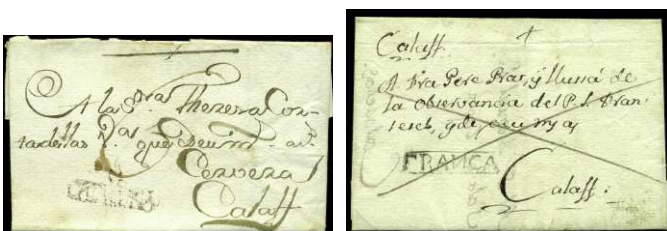 A la Sra Thereza Con-
tardellas V.a que Deum. ad.
Cervera
Calaff
Calaff.
A Fra Pere Pras, y llussá de
la observancia del P. S. Fran-
sesch, gde
FRANCA
Calaff.